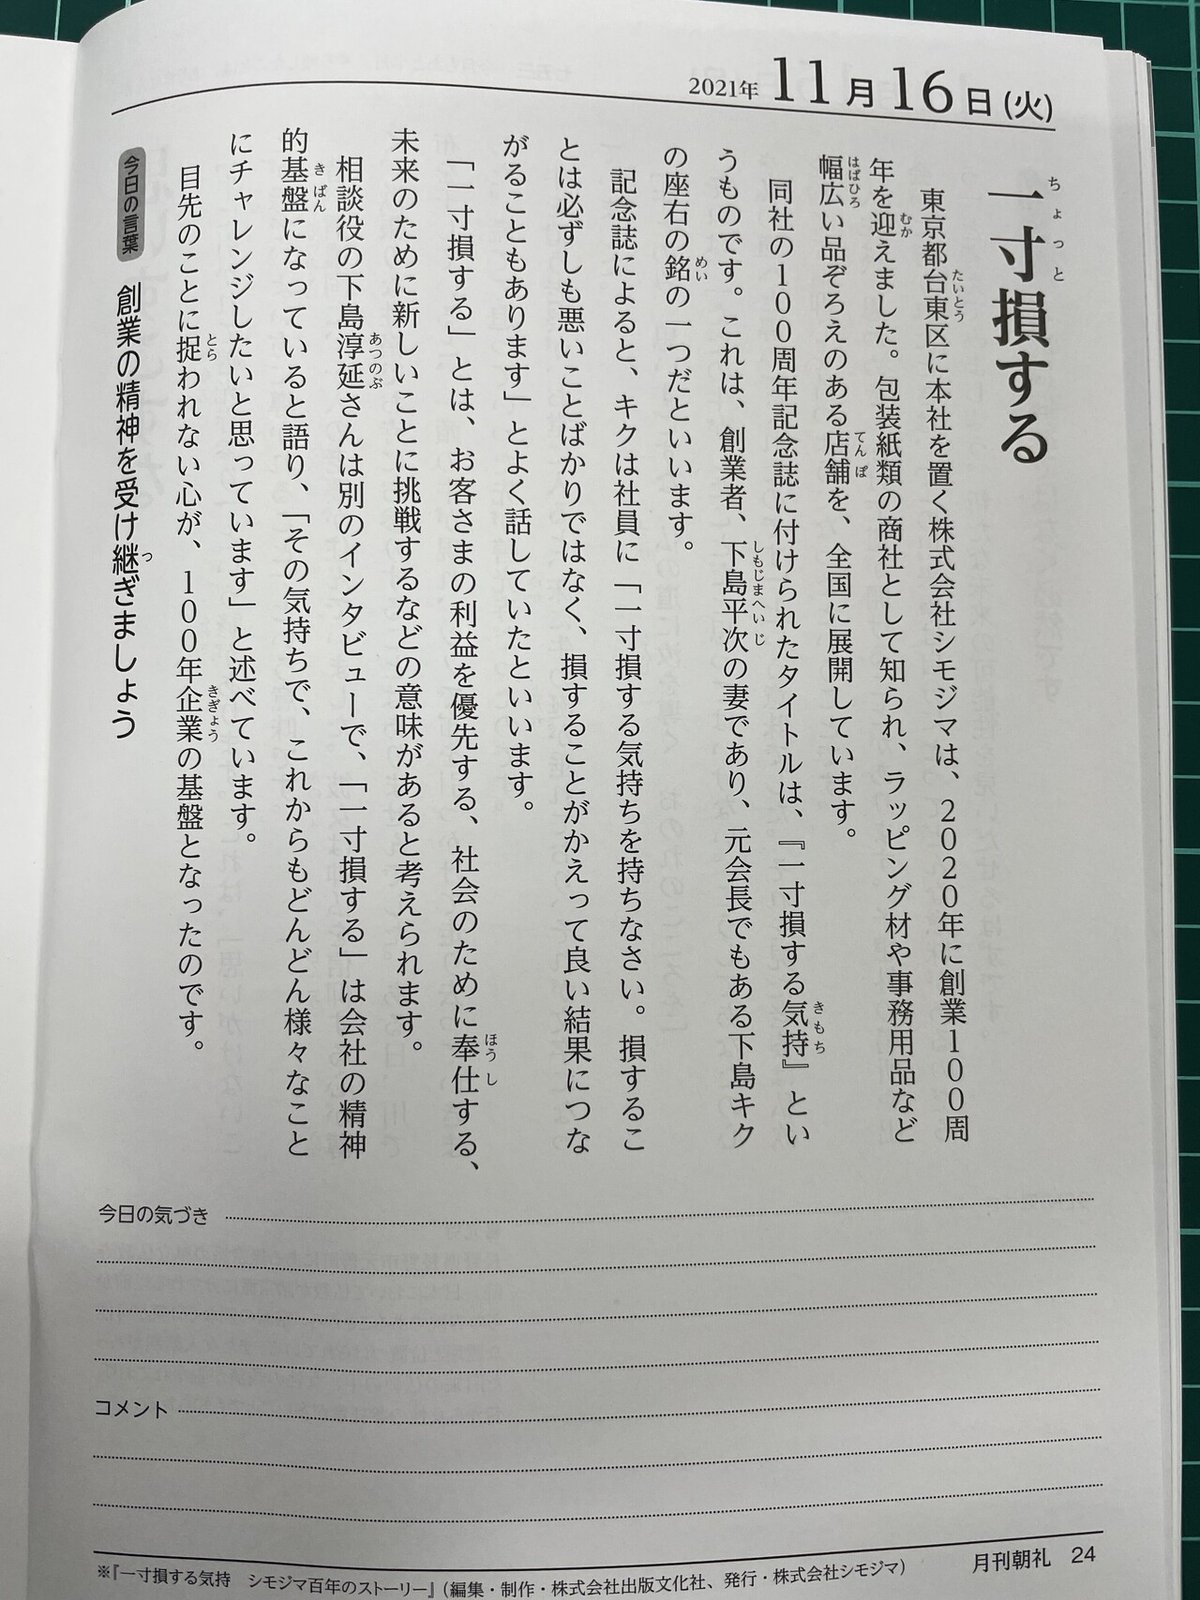 2021年 11月16日(火)
一寸損する
東京都台東区に本社を置く株式会社シモジマは、2020年に創業100周
年を迎えました。包装紙類の商社として知られ、ラッピング材や事務用品など
幅広い品ぞろえのある店舗を、全国に展開しています。
同社の100周年記念誌に付けられたタイトルは、『一寸損する気持』とい
うものです。これは、創業者、下島平次の妻であり、元会長でもある下島キク
の座右の銘の一つだといいます。
記念誌によると、キクは社員に「一寸損する気持ちを持ちなさい。損するこ
とは必ずしも悪いことばかりではなく、損することがかえって良い結果につな
がることもあります」とよく話していたといいます。
「一寸損する」とは、お客さまの利益を優先する、社会のために奉仕する、
未来のために新しいことに挑戦するなどの意味があると考えられます。
相談役の下島淳延さんは別のインタビューで、「一寸損する」は会社の精神
的基盤になっていると語り、「その気持ちで、これからもどんどん様々なこと
にチャレンジしたいと思っています」と述べています。
目先のことに捉われない心が、100年企業の基盤となったのです。
今日の言葉 創業の精神を受け継ぎましょう
今日の気づき
コメント
月刊朝礼 24
※『一寸損する気持 シモジマ百年のストーリー』(編集・制作・株式会社出版文化社、発行・株式会社シモジマ)